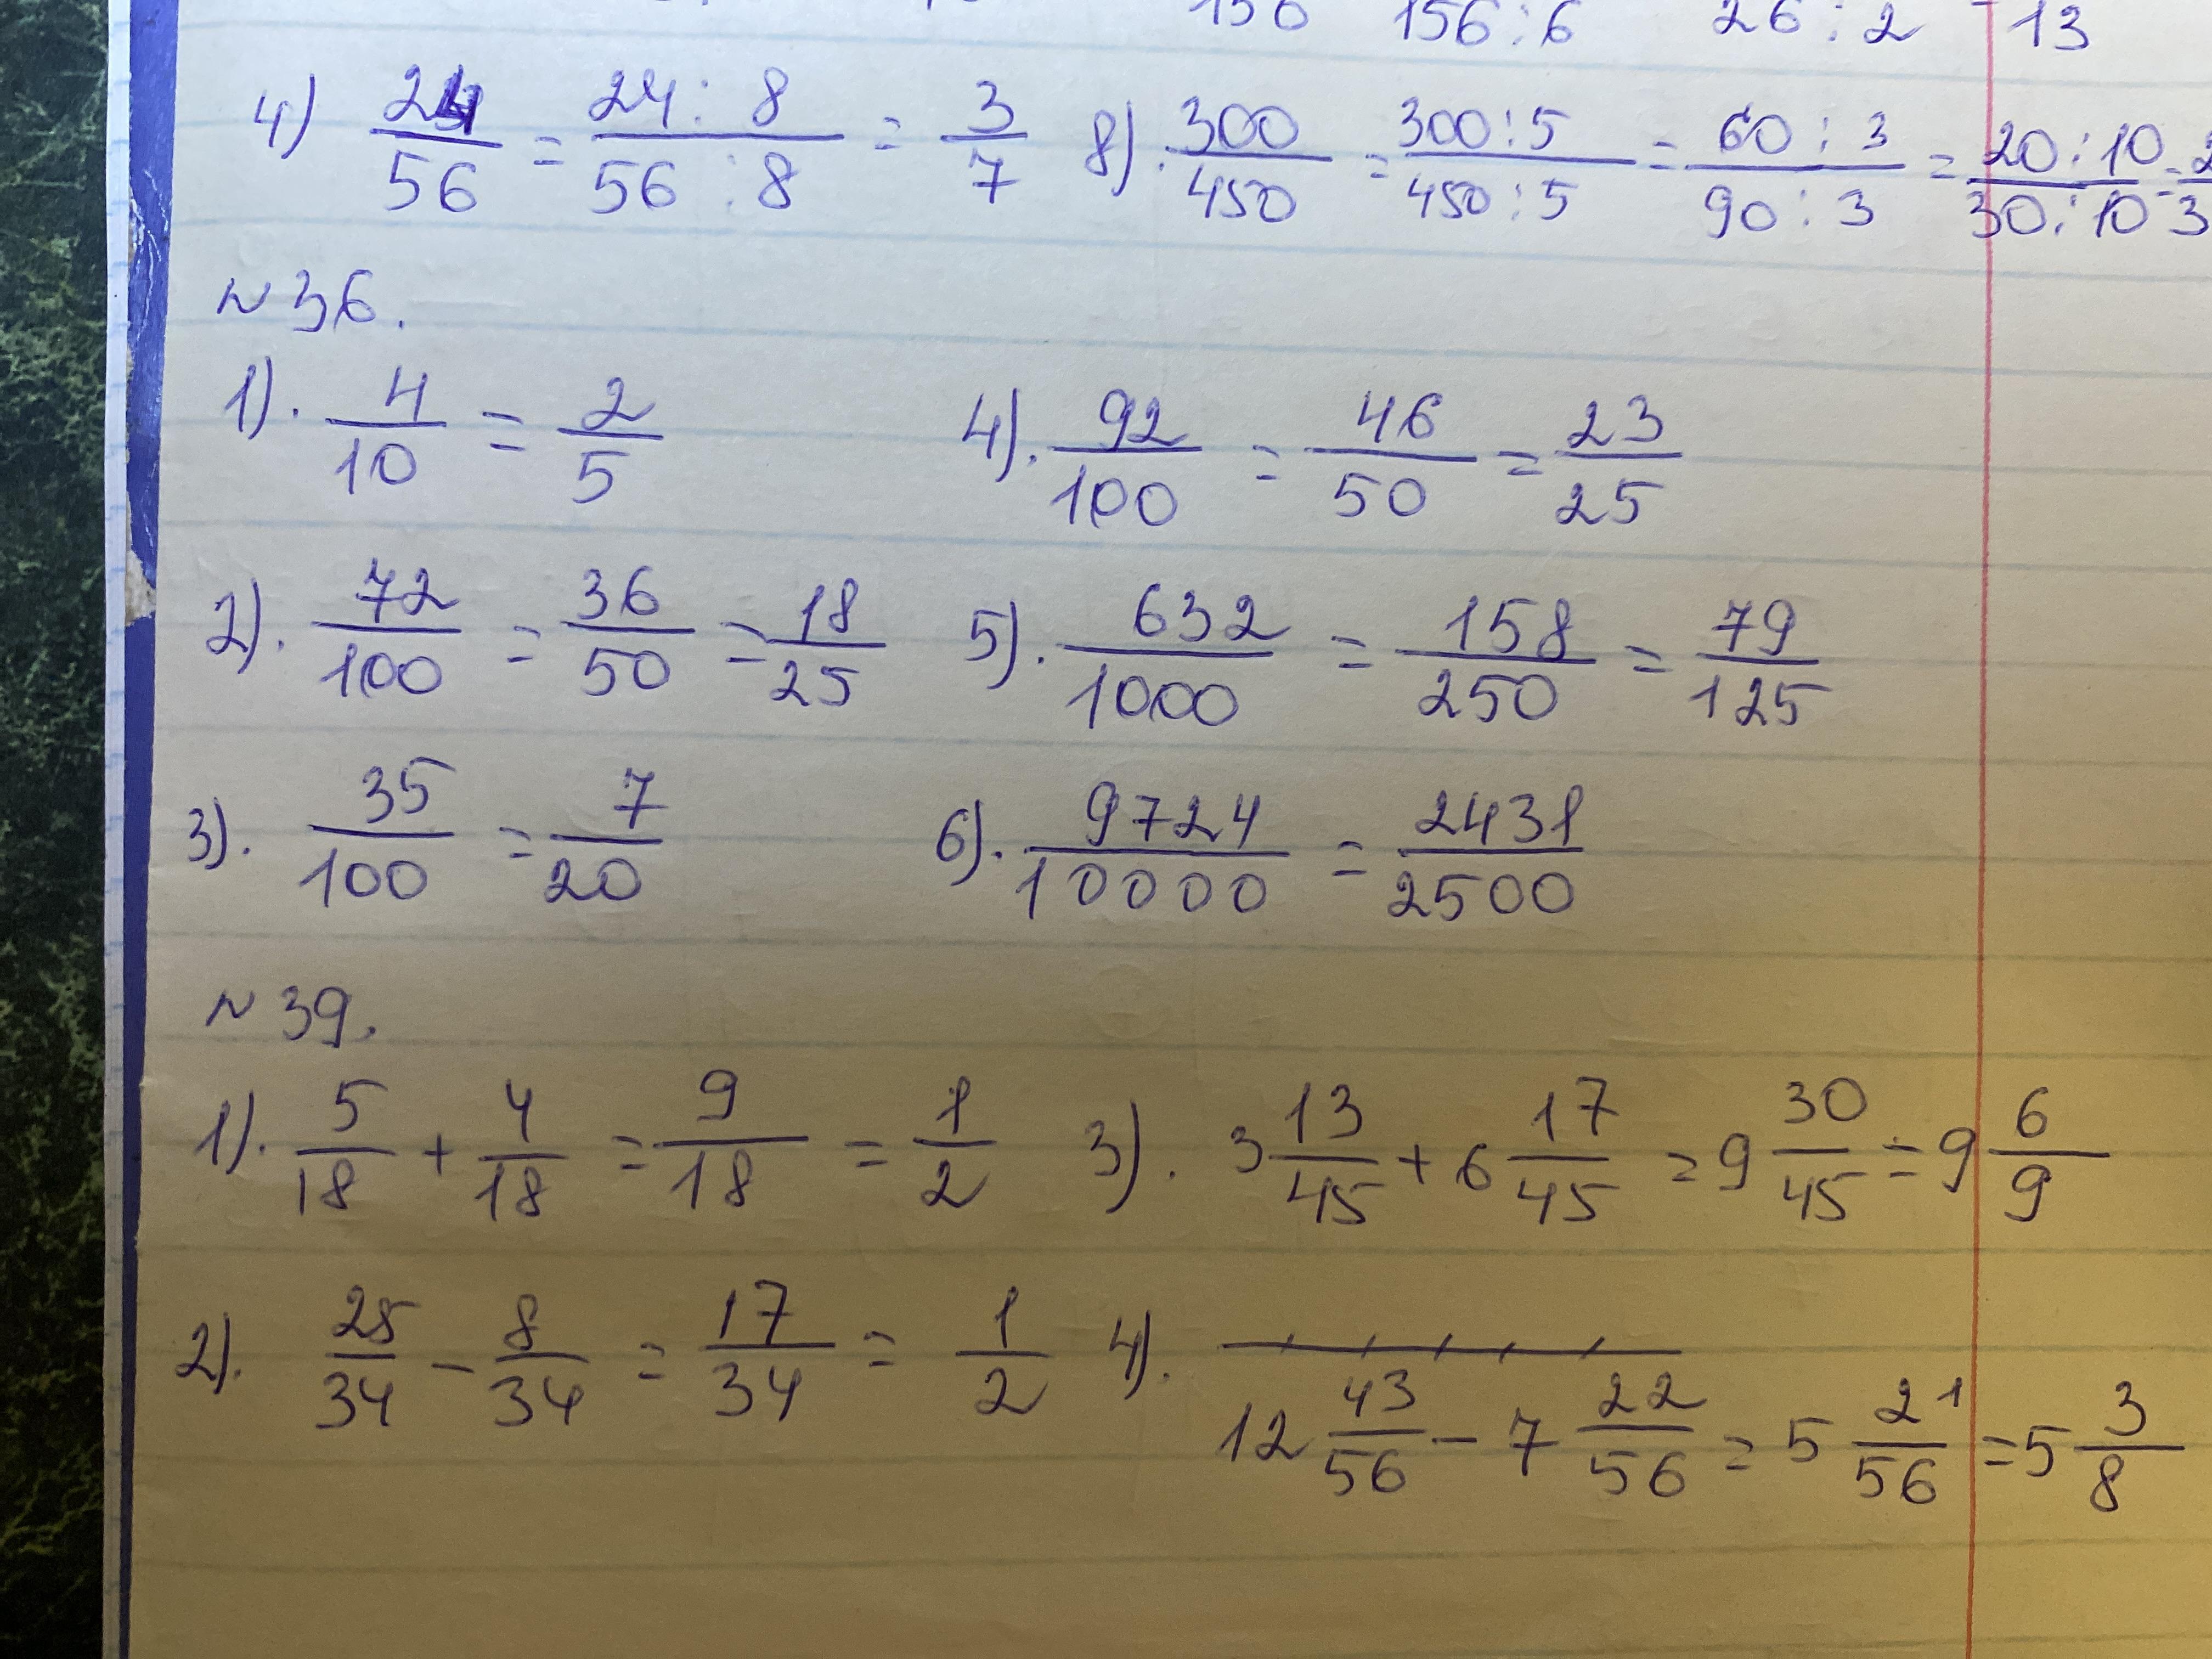 156 156:6 26:2 13
4) 24/56 = 24:8/56:8 = 3/7 8). 300/450 = 300:5/450:5 = 60:3/90:3 = 20:10/30:10 = 2/3
№36.
1). 4/10 = 2/5 4). 92/100 = 46/50 = 23/25
2). 72/100 = 36/50 = 18/25 5). 632/1000 = 158/250 = 79/125
3). 35/100 = 7/20 6). 9724/10000 = 2431/2500
№39.
1). 5/18 + 4/18 = 9/18 = 1/2 3). 3 13/45 + 6 17/45 = 9 30/45 = 9 6/9
2). 25/34 - 8/34 = 17/34 = 1/2 4).
12 43/56 - 7 22/56 = 5 21/56 = 5 3/8